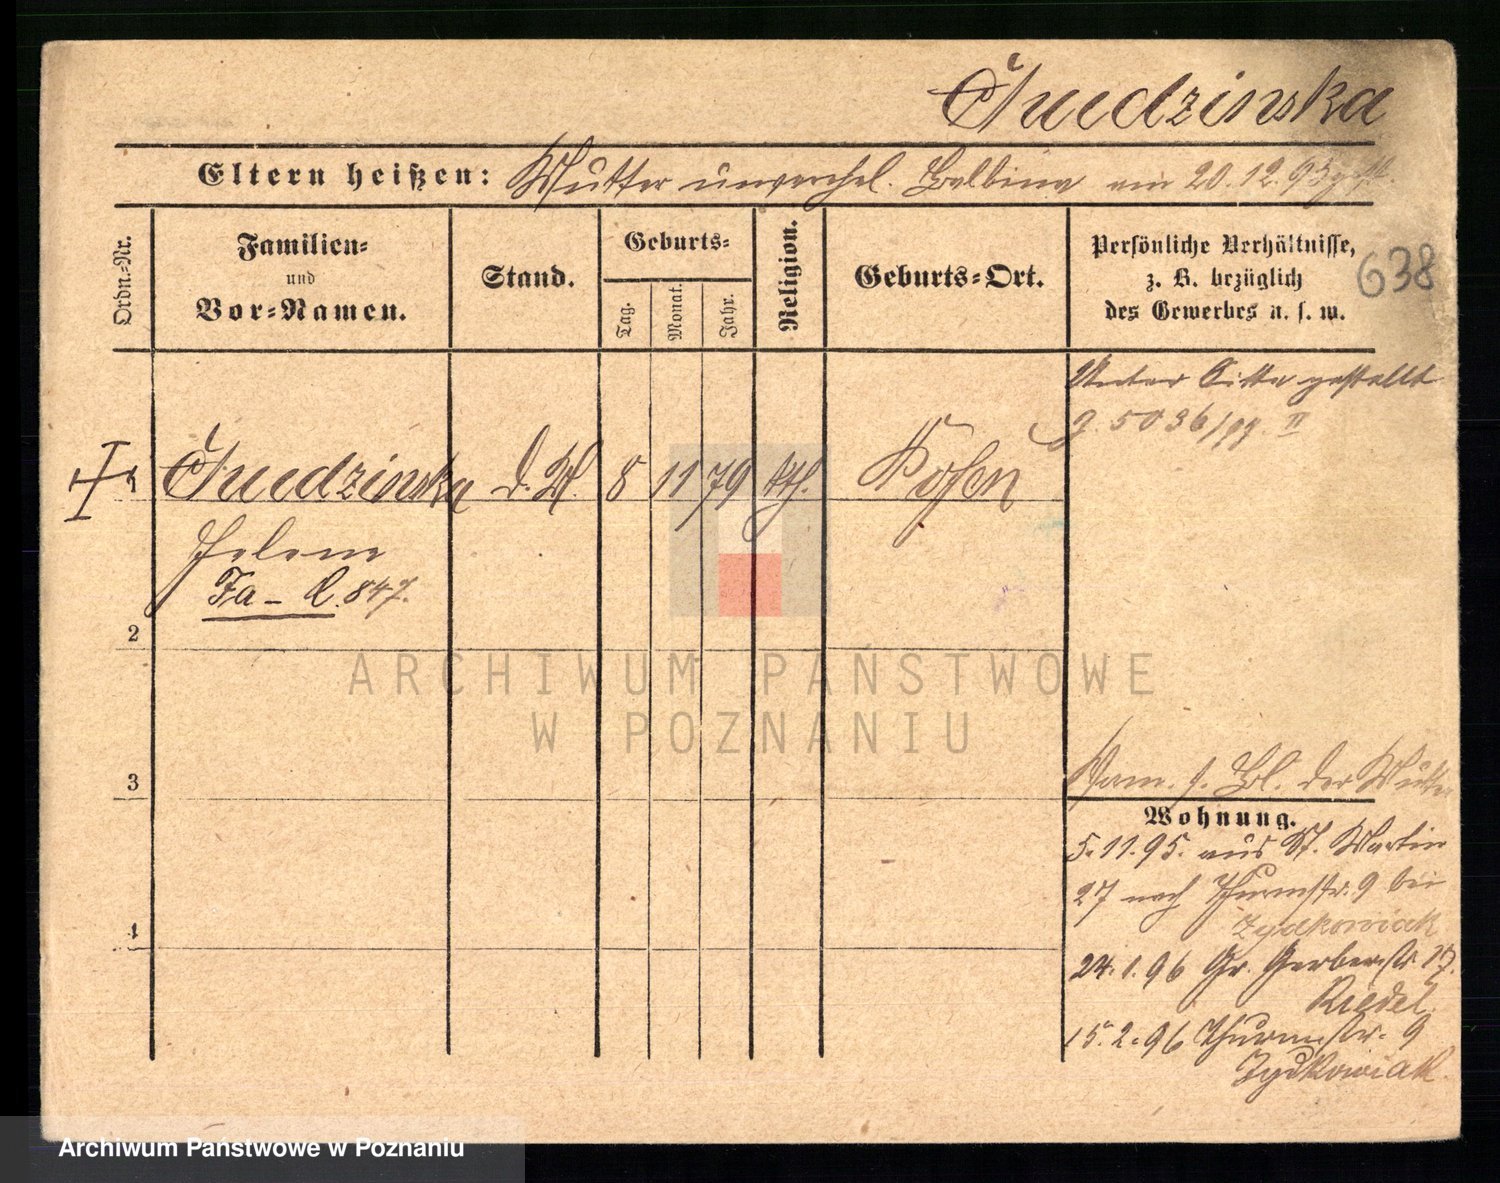 Eltern heißen: Mutter unverehel. Balbina am 20.12.93
Ordn.-Nr.
Familien-
und
Vor-Namen.
Stand.
Geburts-
Tag.
Monat.
Jahr.
Religion.
Geburts-Ort.
Persönliche Verhältnisse,
z. B. bezüglich
des Gewerbes u. s. w.
638
Unter Sitte gestellt
5036/99. II
d. M. 8 11 79 kth. Posen
Helene
Fa - l. 847.
2
3
4
Fam. s. Bl. der Mutter
Wohnung.
5.11.95. aus St. Martin
27 nach Thurmstr. 9 bei
Zydkowiak
24.1.96 Gr. Gerberstr. 17.
Riedel.
15.2.96 Thurmstr. 9
Zydkowiak.
ARCHIWUM PAŃSTWOWE
W POZNANIU
Archiwum Państwowe w Poznaniu